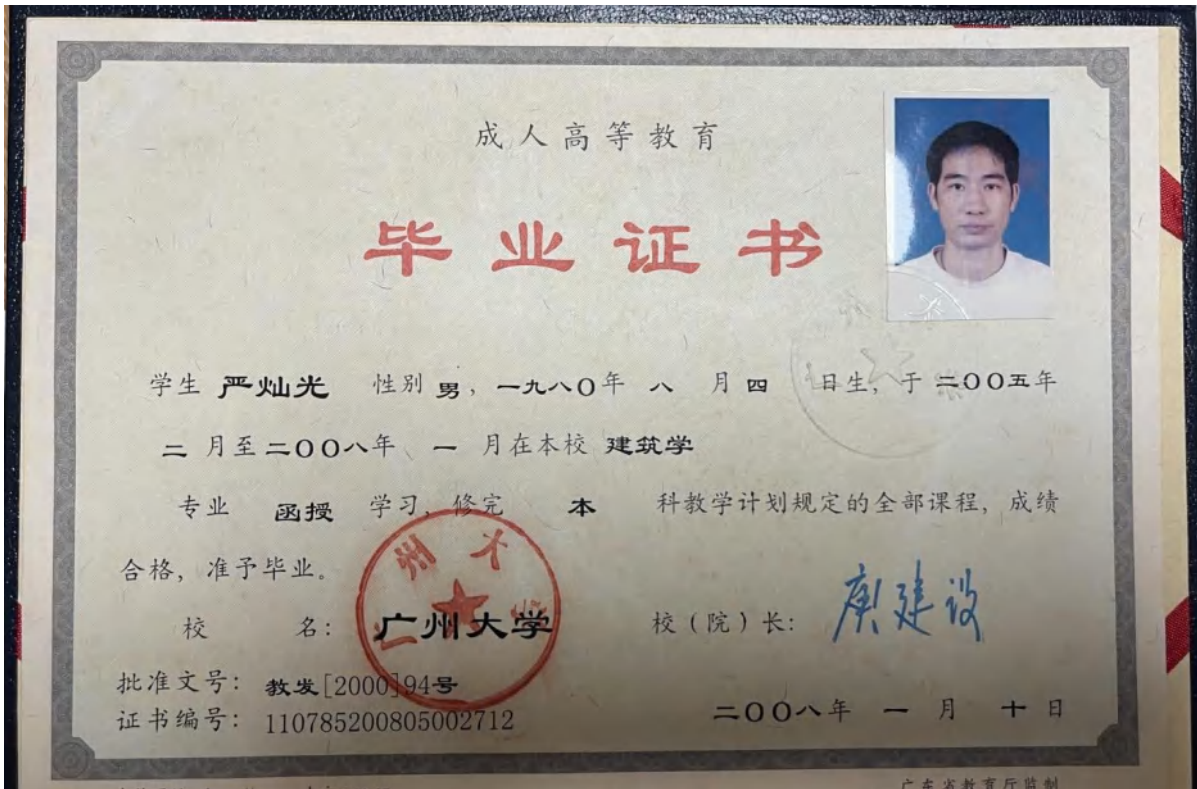 成人高等教育
毕业证书
学生 严灿光 性别 男，一九八〇年 八 月 四 日生，于 二〇〇五年
二 月至二〇〇八年 一 月在本校 建筑学
专业 函授 学习，修完 本 科教学计划规定的全部课程，成绩
合格，准予毕业。
校 名：广州大学 校（院）长：庾建设
批准文号：教发[2000]94号
证书编号：110785200805002712 二〇〇八年 一 月 十 日
广东省教育厅监制